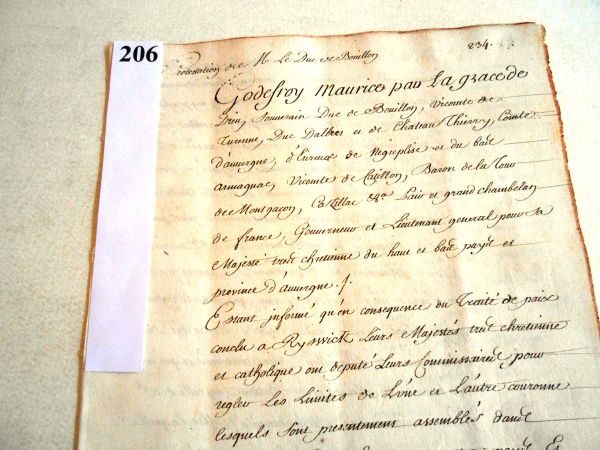 206
Protestation de Mr Le Duc de Bouillon
234.
Godefroy Maurice par La grace de
Dieu, Souverain Duc de Bouillon, Vicomte de
Turenne, Duc Dalbret et de Chateau Thierry, Comte
d'auvergne, d'Eureux de Negreplisse et du bas
armagnac, Vicomte de Castillon, Baron de la Tour
de Montgacon, et Zillac &ca. Pair et grand chambelan
de france, Gouverneur et Lieutenant general pour sa
Majesté tres chretienne du haut et bas payis et
province d'auvergne ./.
Estans informé qu'en consequence du Traité de paix
conclu a Ryswick Leurs Majestés tres chretienne
et catholique ont deputé Leurs Commissaires pour
regler Les Limites de L'une et L'autre couronne
lesquels sont presentement assemblés dans